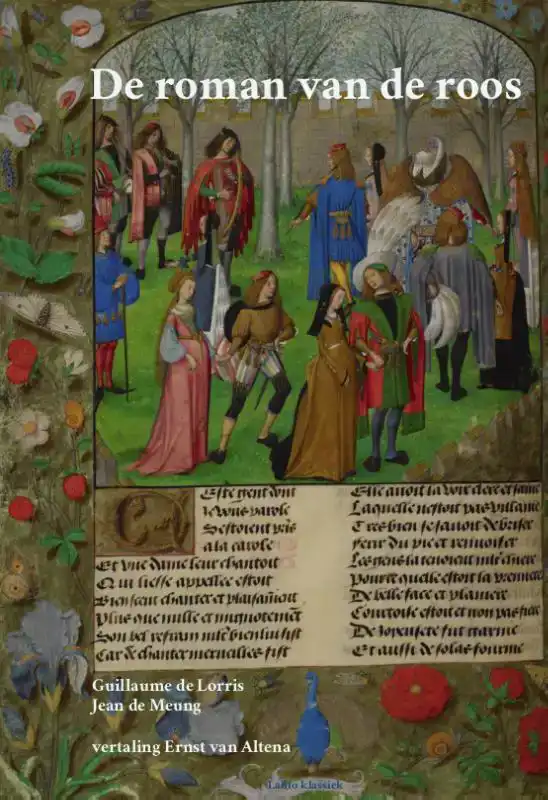 De roman van de roos
Ceste gent dont
ie vous parole
Sestoient pris
a la carole
Et vne dame leur chantoit
Qui liesse appellee estoit
Bien sceut chanter et
Plus que nulle et mignotement
Son bel refrain bien lui sist
Car de chanter merueilles fist
Elle auoit la voix clere et saine
Laquelle nestoit pas villaine
Tres bien se sauoit debriser
ferir du pie et renuoisier
Les gens la tenoient chiere
Pource quelle estoit la premiere
De belle face et planiere
Courtoise estoit et non pas fiere
De fut garnie
Et aussi de solas fournie
Guillaume de Lorris
Jean de Meung
vertaling Ernst van Altena
Lalito klassiek